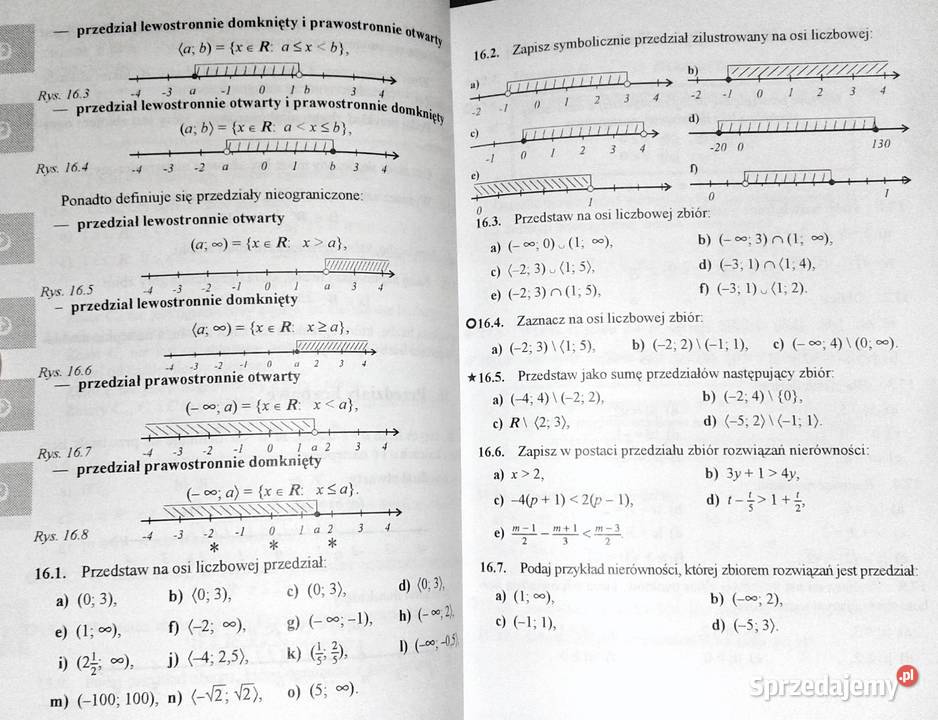 — przedział lewostronnie domknięty i prawostronnie otwarty
⟨a; b) = {x ∈ R: a ≤ x < b},
Rys. 16.3
-4 -3 a -1 0 1 b 3 4
— przedział lewostronnie otwarty i prawostronnie domknięty
(a; b⟩ = {x ∈ R: a < x ≤ b},
Rys. 16.4
-4 -3 -2 a 0 1 b 3 4
Ponadto definiuje się przedziały nieograniczone:
— przedział lewostronnie otwarty
(a; ∞) = {x ∈ R: x > a},
Rys. 16.5
-4 -3 -2 -1 0 1 a 3 4
– przedział lewostronnie domknięty
⟨a; ∞) = {x ∈ R: x ≥ a},
Rys. 16.6
-4 -3 -2 -1 0 a 2 3 4
— przedział prawostronnie otwarty
(– ∞; a) = {x ∈ R: x < a},
Rys. 16.7
-4 -3 -2 -1 0 1 a 2 3 4
— przedział prawostronnie domknięty
(– ∞; a⟩ = {x ∈ R: x ≤ a}.
Rys. 16.8
-4 -3 -2 -1 0 1 a 2 3 4
* * *
16.1. Przedstaw na osi liczbowej przedział:
a) (0; 3), b) ⟨0; 3), c) (0; 3⟩, d) ⟨0; 3⟩,
e) (1; ∞), f) ⟨–2; ∞), g) (– ∞; –1), h) (– ∞; 2⟩,
i) (2 1/2; ∞), j) ⟨–4; 2,5⟩, k) (1/5; 2/5), l) (–∞; –0,5⟩,
m) (–100; 100), n) ⟨–√2; √2⟩, o) (5; ∞).
16.2. Zapisz symbolicznie przedział zilustrowany na osi liczbowej:
a) -2 -1 0 1 2 3 4
b) -2 -1 0 1 2 3 4
c) -1 0 1 2 3 4
d) -20 0 130
e) 0 1
f) 0 1
16.3. Przedstaw na osi liczbowej zbiór:
a) (– ∞; 0) ∪ (1; ∞), b) (– ∞; 3) ∩ (1; ∞),
c) ⟨–2; 3) ∪ ⟨1; 5), d) (–3; 1) ∩ ⟨1; 4),
e) (–2; 3) ∩ (1; 5), f) (–3; 1) ∪ ⟨1; 2).
16.4. Zaznacz na osi liczbowej zbiór:
a) (–2; 3) \ ⟨1; 5), b) (–2; 2) \ (–1; 1), c) (– ∞; 4) \ (0; ∞).
★16.5. Przedstaw jako sumę przedziałów następujący zbiór:
a) (–4; 4) \ (–2; 2), b) (–2; 4) \ {0},
c) R \ ⟨2; 3), d) ⟨–5; 2⟩ \ ⟨–1; 1⟩.
16.6. Zapisz w postaci przedziału zbiór rozwiązań nierówności:
a) x > 2, b) 3y + 1 > 4y,
c) –4(p + 1) < 2(p – 1), d) t – t/5 > 1 + t/2,
e) (m – 1)/2 – (m + 1)/3 < (m – 3)/2.
16.7. Podaj przykład nierówności, której zbiorem rozwiązań jest przedział:
a) (1; ∞), b) (–∞; 2),
c) (–1; 1), d) (–5; 3⟩.
Sprzedajemy.pl